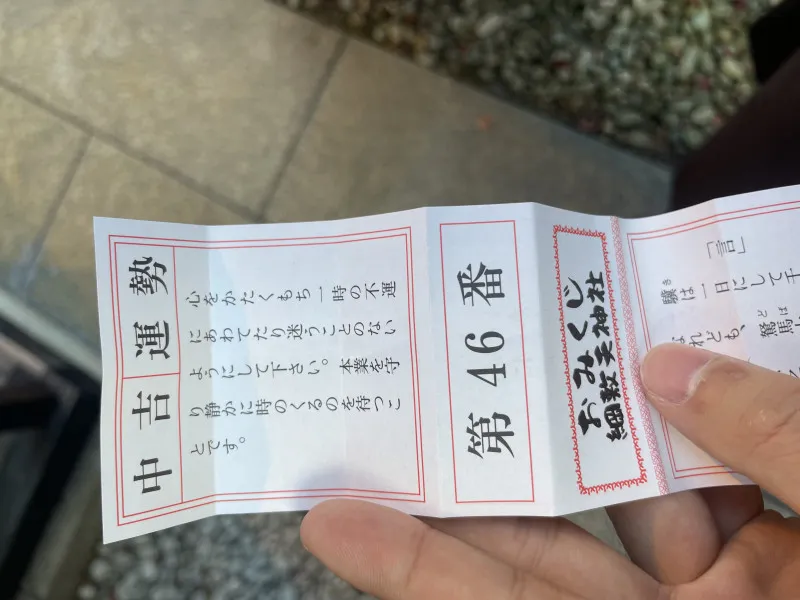 中吉 運勢
心をかたくもち一時の不運
にあわてたり迷うことのない
ようにして下さい。本業を守
り静かに時のくるのを待つこ
とです。
第46番
おみくじ
綱敷天神社
「言」
驥は一日にして千
れども、駑馬